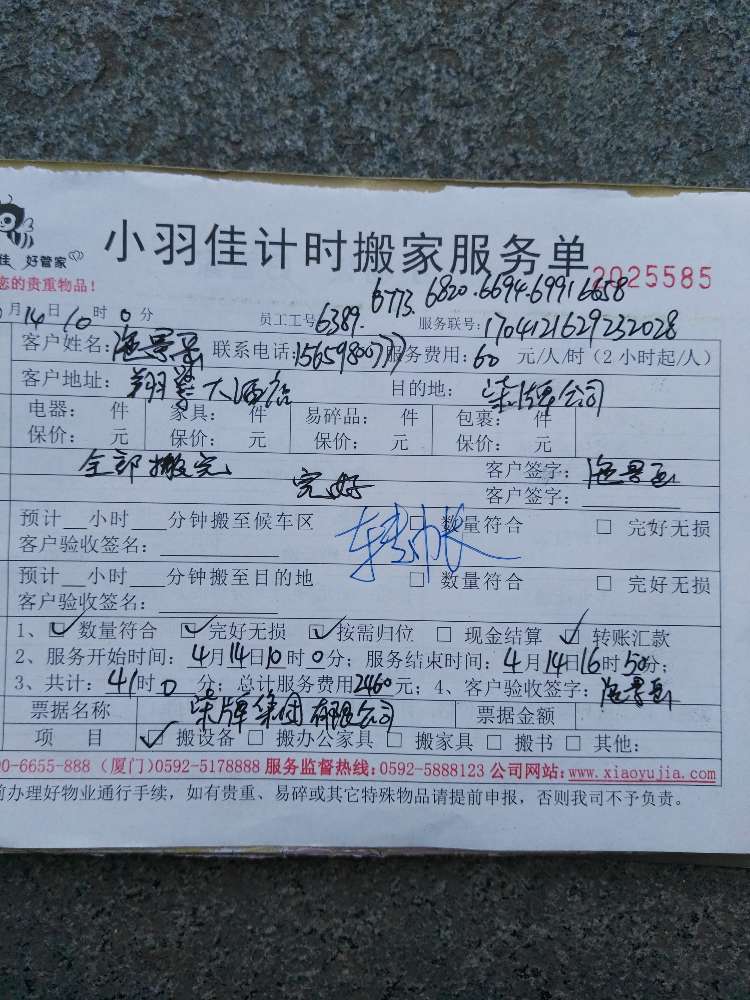 小羽佳计时搬家服务单
佳 好管家
2025585
您的贵重物品!
6773. 6820.6694.6991 6658
月14日10时0分 员工工号6389. 服务联号:1704121629232028
客户姓名: 联系电话:15659800777 服务费用:60 元/人/时(2小时起/人)
客户地址:翔鹭大酒店 目的地:柒牌公司
电器: 件 家具: 件 易碎品: 件 包裹: 件
保价: 元 保价: 元 保价: 元 保价: 元
全部搬完 完好 客户签字:
客户签字:
预计__小时___分钟搬至候车区 □ 数量符合 □ 完好无损
客户验收签名:
预计__小时___分钟搬至目的地 □ 数量符合 □ 完好无损
客户验收签名:
1、☑ 数量符合 ☑ 完好无损 ☑ 按需归位 □ 现金结算 ☑ 转账汇款
2、服务开始时间:4月14日10时0分;服务结束时间:4月14日16时50分;
3、共计:41时0分;总计服务费用2460元;4、客户验收签字:
票据名称 柒牌集团有限公司 票据金额
项 目 ☑ 搬设备 □ 搬办公家具 □ 搬家具 □ 搬书 □ 其他:
0-6655-888 (厦门)0592-5178888 服务监督热线:0592-5888123 公司网站:www.xiaoyujia.com
前办理好物业通行手续,如有贵重、易碎或其它特殊物品请提前申报,否则我司不予负责。